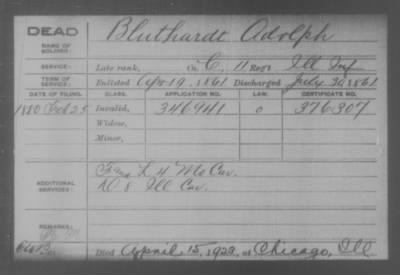 DEAD Bluthardt Adolph
NAME OF SOLDIER:
SERVICE: Late rank, Co. C, 11 Reg't Ill Inf
TERM OF SERVICE: Enlisted Apr 19, 1861 Discharged July 30 1861
DATE OF FILING. CLASS. APPLICATION NO. LAW. CERTIFICATE NO.
1880 Feb 25 Invalid, 346941 o 376307
Widow,
Minor,
ADDITIONAL SERVICES: L 4 Mo Cav.
D 8 Ill Cav.
REMARKS:
Died April 15, 1929, at Chicago, Ill